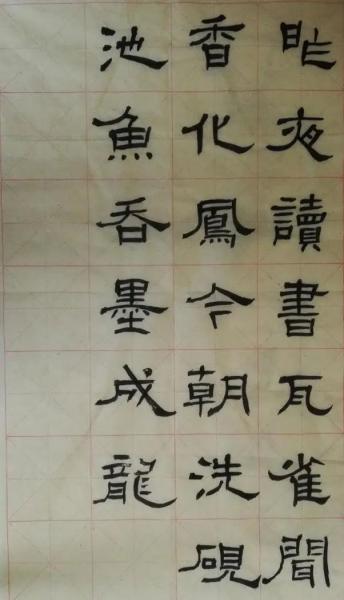 昨夜讀書瓦雀聞
香化鳳今朝洗硯
池魚吞墨成龍